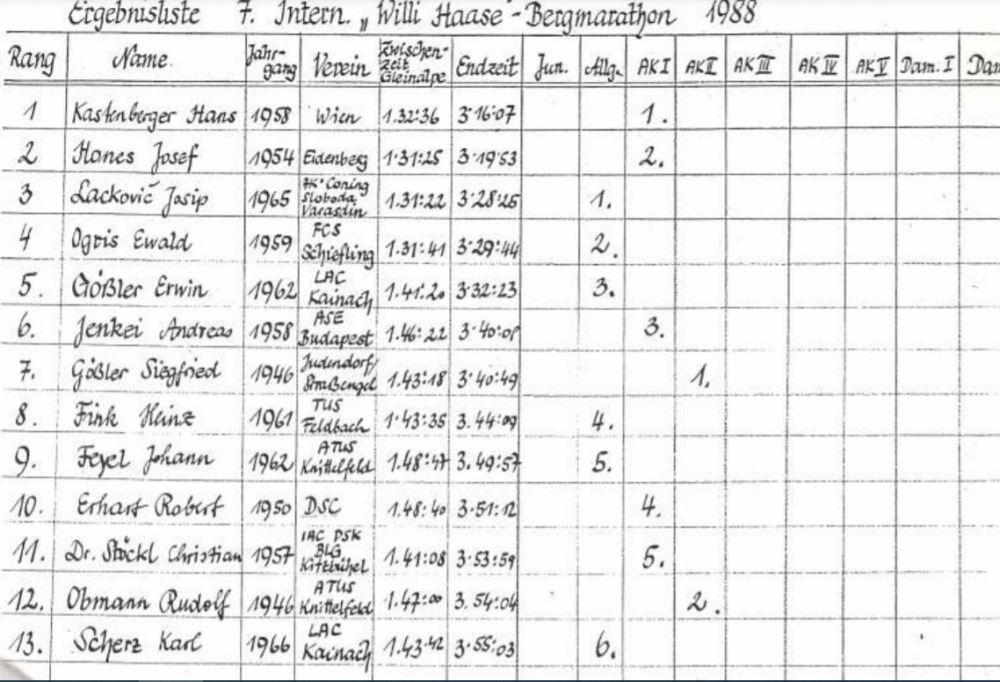 Ergebnisliste 7. Intern. „Willi Haase"-Bergmarathon 1988
Rang Name. Jahr-gang Verein Zwischen-zeit Gleinalpe Endzeit Jun. Allg. AK I AK II AK III AK IV AK V Dam. I Dam
1 Kastenberger Hans 1958 Wien 1.32:36 3:16:07 1.
2 Hones Josef 1954 Eidenberg 1.31:25 3.19:53 2.
3 Lacković Josip 1965 AK Coning Sloboda Varasdin 1.31:22 3:28:25 1.
4 Ogris Ewald 1959 FCS Schiefling 1.31:41 3:29:44 2.
5. Gößler Erwin 1962 LAC Kainach 1.41:20 3:32:23 3.
6. Jenkei Andreas 1958 ASE Budapest 1.46:22 3.40:01 3.
7. Gößler Siegfried 1946 Judendorf/Straßengel 1.43:18 3:40:49 1.
8. Fink Heinz 1961 TUS Feldbach 1.43:35 3.44:09 4.
9. Feyel Johann 1962 ATUS Knittelfeld 1.48:47 3.49:57 5.
10. Erhart Robert 1950 DSC 1.48:40 3.51:12 4.
11. Dr. Stöckl Christian 1957 IAC DSK BLG Kitzbühel 1.41:08 3.53:59 5.
12. Obmann Rudolf 1946 ATUS Knittelfeld 1.47:00 3.54:04 2.
13. Scherz Karl 1966 LAC Kainach 1.43:42 3.55:03 6.